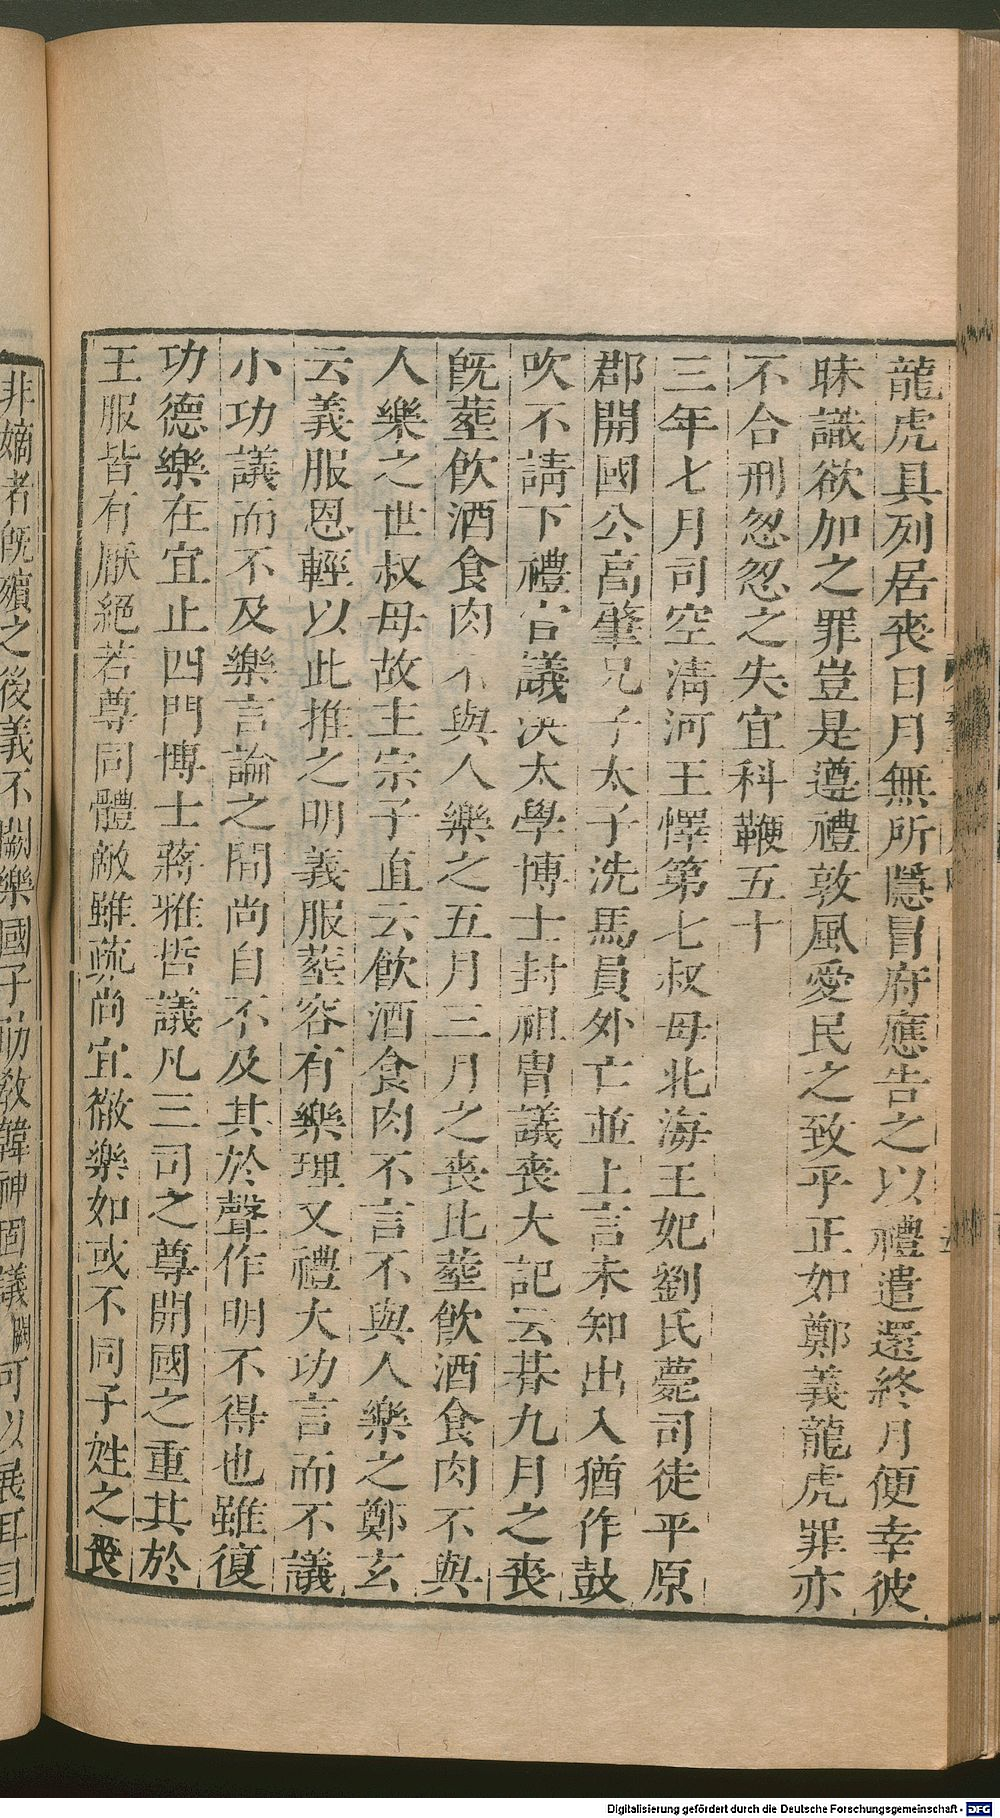 龍虎具列居喪日月無所隱冒府應告之以禮遣還終月便幸彼
昧識欲加之罪豈是遵禮敦風愛民之致乎正如鄭義龍虎罪亦
不合刑忽忽之失宜科鞭五十
三年七月司空淸河王懌第七叔母北海王妃劉氏薨司徒平原
郡開國公高肇兄子太子洗馬員外亡並上言未知出入猶作鼓
吹不請下禮官議決太學博士封祖胄議喪大記云朞九月之喪
旣葬飮酒食肉不與人樂之五月三月之喪比葬飮酒食肉不與
人樂之世叔母故主宗子直云飮酒食肉不言不與人樂之鄭玄
云義服恩輕以此推之明義服葬容有樂理又禮大功言而不議
小功議而不及樂言論之間尚自不及其於聲作明不得也雖復
功德樂在宜止四門博士蔣雅哲議凡三司之尊開國之重其於
王服皆有厭絕若尊同體敵雖疏尚宜徹樂如或不同子姓之喪
非嫡者旣殯之後義不關樂國子助敎韓神固議
可以展耳目
Digitalisierung gefördert durch die Deutsche Forschungsgemeinschaft - DFG